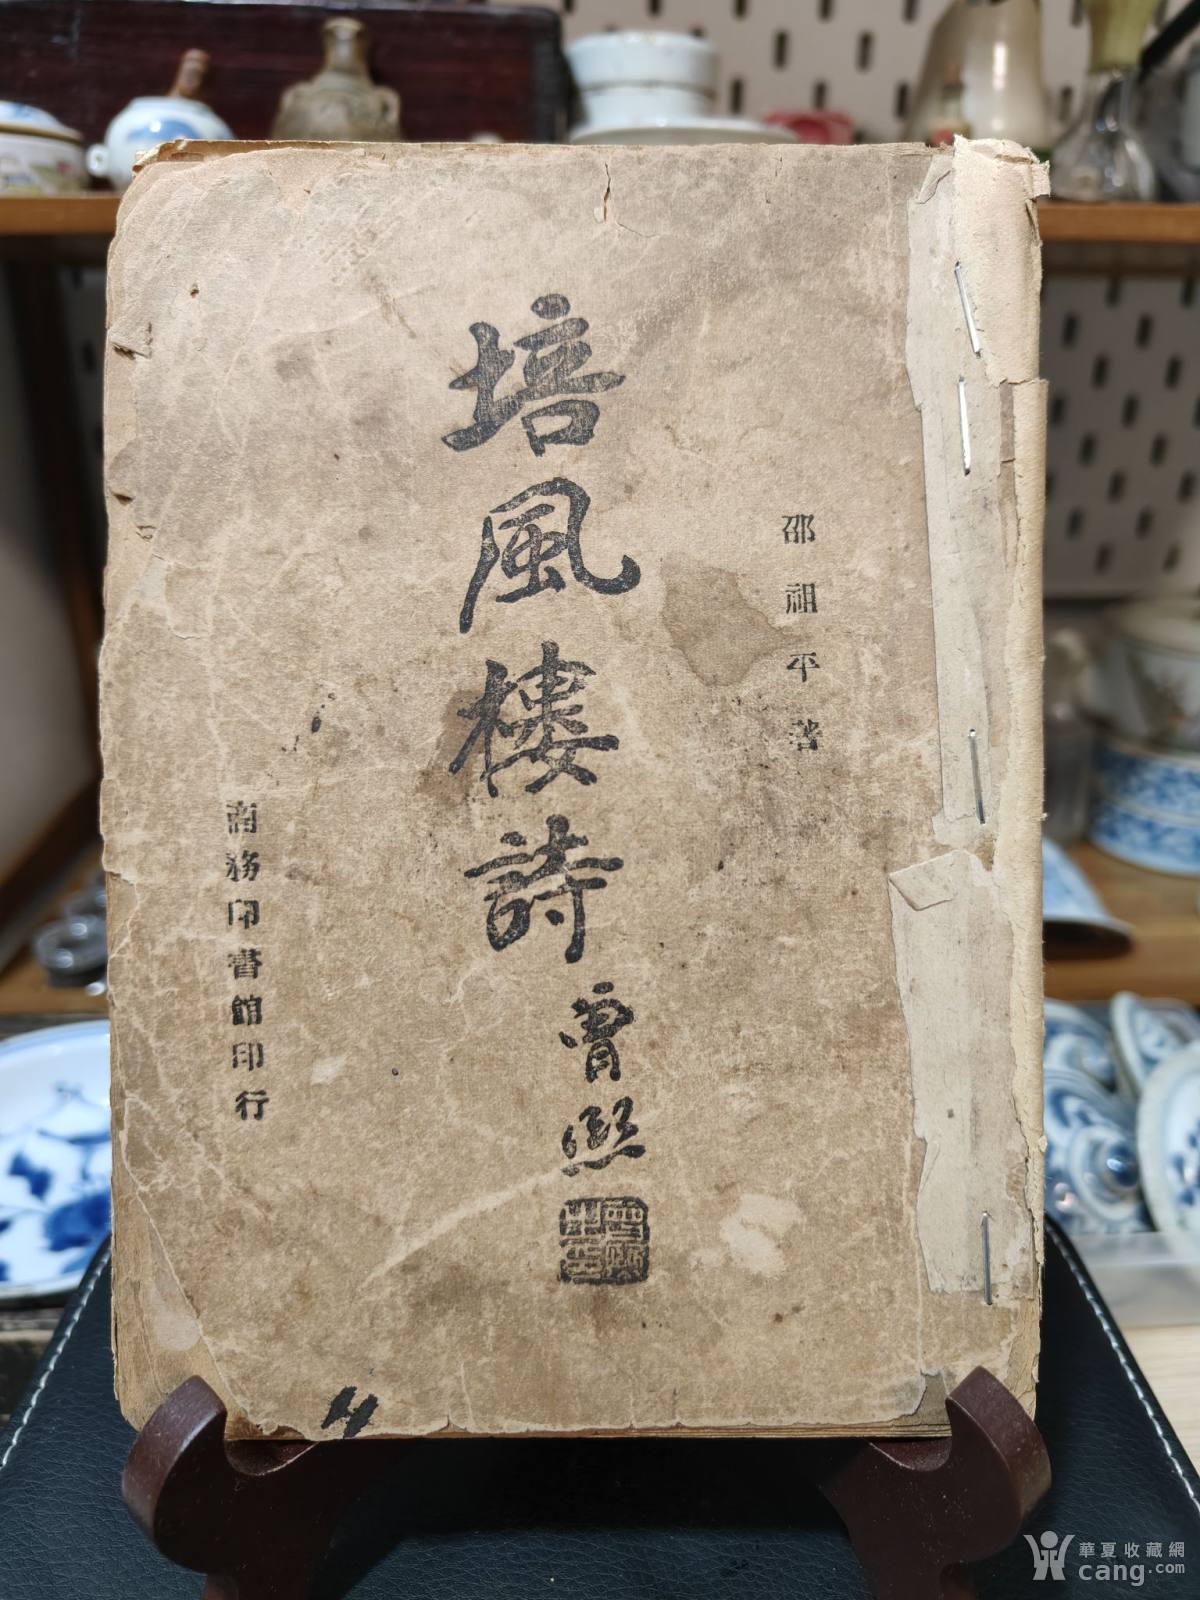 邵祖平著
培風樓詩
曾熙
商務印書館印行
華夏收藏網
cang.com